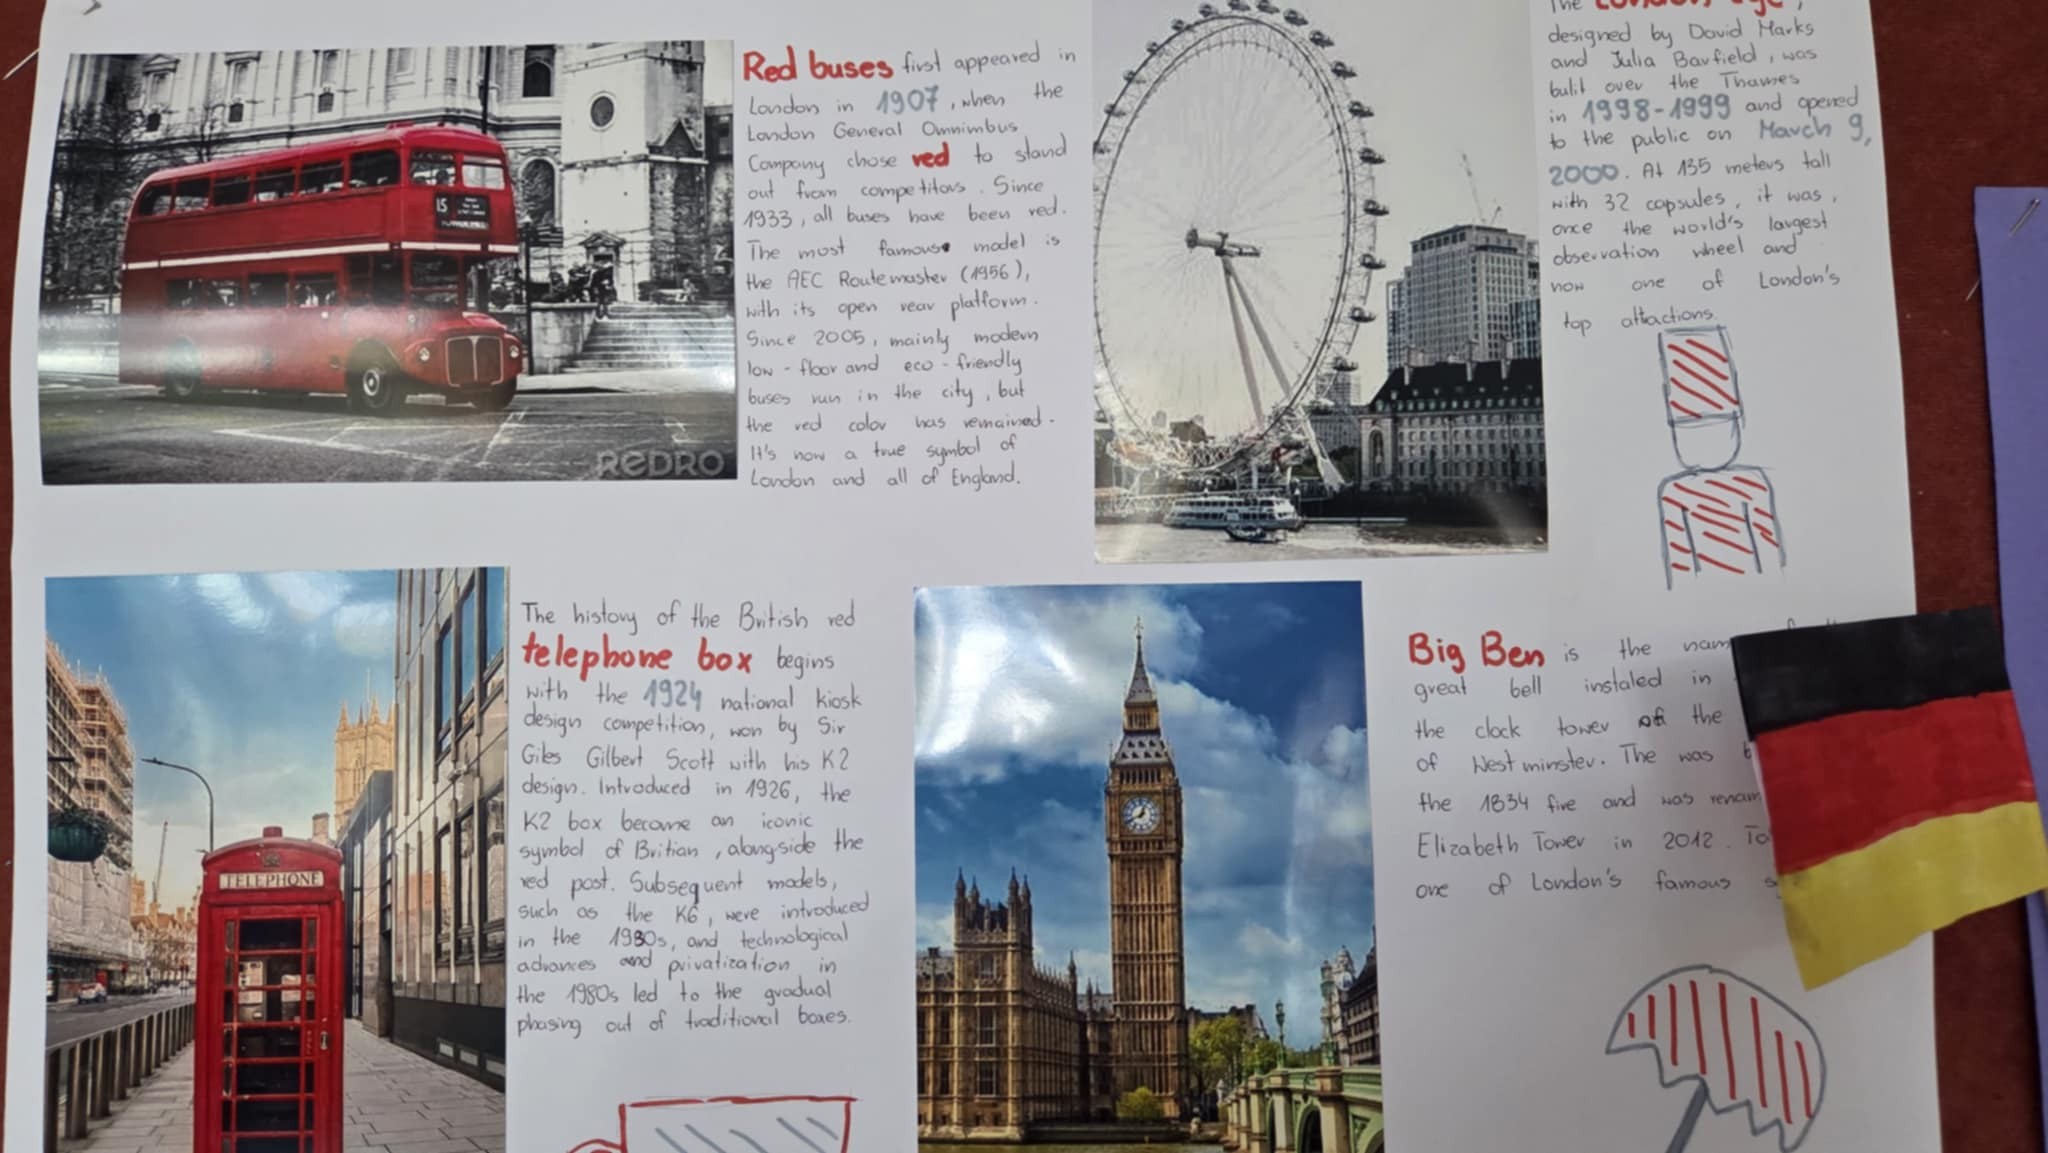 Red buses first appeared in
London in 1907, when the
London General Omnimbus
Company chose red to stand
out from competitors. Since
1933, all buses have been red.
The most famous model is
the AEC Routemaster (1956),
with its open rear platform.
Since 2005, mainly modern
low-floor and eco-friendly
buses run in the city, but
the red color has remained.
It's now a true symbol of
London and all of England.
15
REDRO
The London Eye,
designed by David Marks
and Julia Barfield, was
bulit over the Thames
in 1998-1999 and opened
to the public on March 9,
2000. At 135 meters tall
with 32 capsules, it was,
once the world's largest
observation wheel and
now one of London's
top attactions.
The history of the British red
telephone box begins
with the 1924 national kiosk
design competition, won by Sir
Giles Gilbert Scott with his K2
design. Introduced in 1926, the
K2 box became an iconic
symbol of Britian, alongside the
red post. Subsequent models,
such as the K6, were introduced
in the 1930s, and technological
advances and privatization in
the 1980s led to the gradual
phasing out of traditional boxes.
TELEPHONE
Big Ben is the nam
great bell instaled in
the clock tower of the
of Westminster. The was b
the 1834 fire and was renam
Elizabeth Tower in 2012. To
one of London's famous s